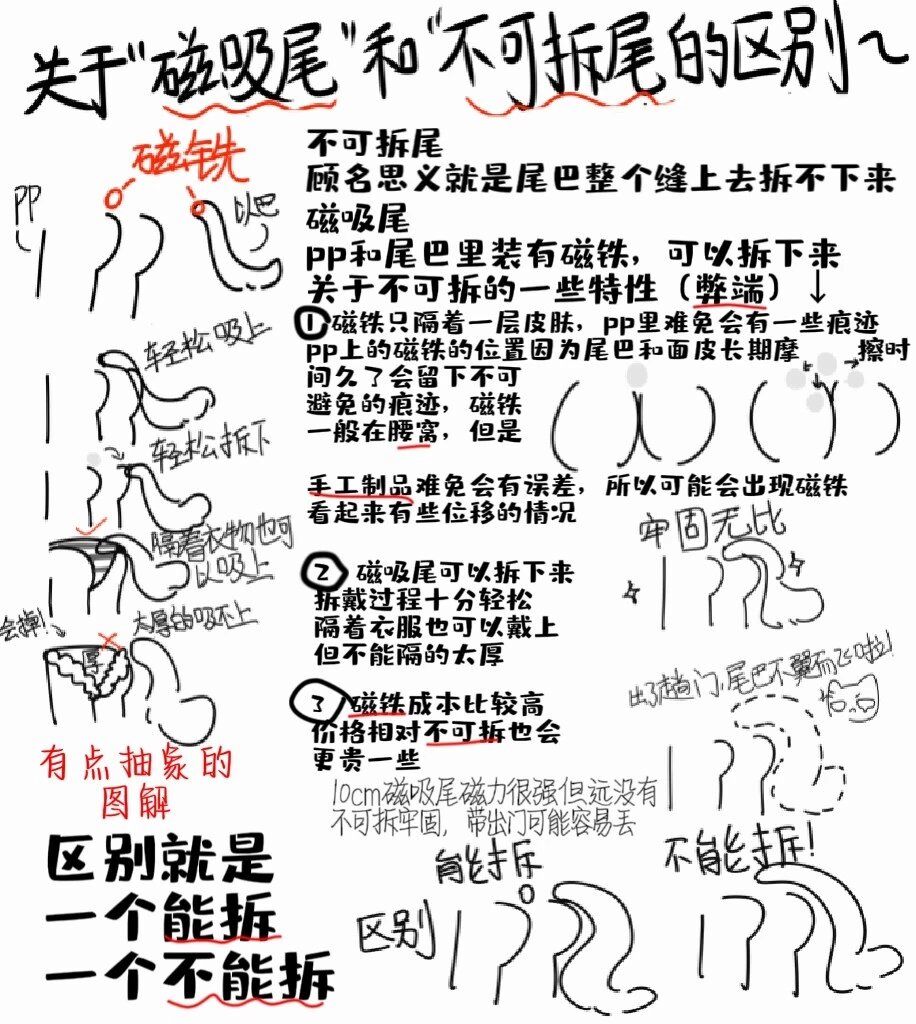 关于“磁吸尾”和“不可拆尾的区别~
磁铁
PP
尾巴
轻松吸上
轻松拆下
隔着衣物也可
以吸上
会掉!
太厚的吸不上
厚
有点抽象的
图解
区别就是
一个能拆
一个不能拆
不可拆尾
顾名思义就是尾巴整个缝上去拆不下来
磁吸尾
pp和尾巴里装有磁铁，可以拆下来
关于不可拆的一些特性（弊端）↓
1 磁铁只隔着一层皮肤，pp里难免会有一些痕迹
pp上的磁铁的位置因为尾巴和面皮长期摩擦时
间久了会留下不可
避免的痕迹，磁铁
一般在腰窝，但是
手工制品难免会有误差，所以可能会出现磁铁
看起来有些位移的情况
2 磁吸尾可以拆下来
拆戴过程十分轻松
隔着衣服也可以戴上
但不能隔的太厚
3 磁铁成本比较高
价格相对不可拆也会
更贵一些
10cm磁吸尾磁力很强但远没有
不可拆牢固，带出门可能容易丢
牢固无比
出了趟门，尾巴不翼而飞啦!
区别
能拆
不能拆!